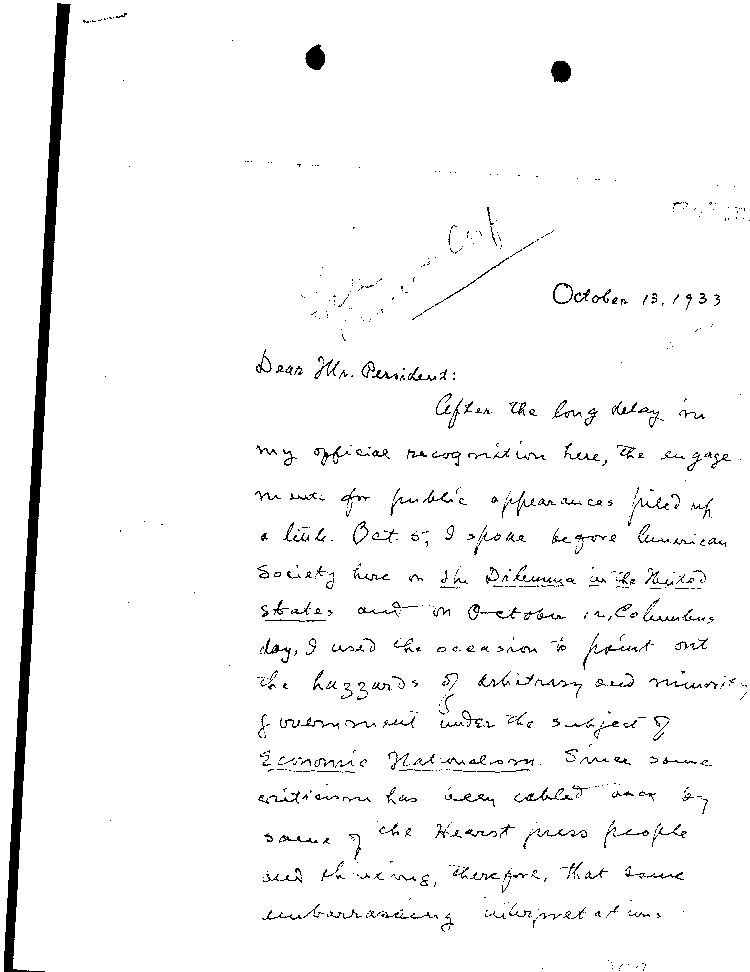 October 13, 1933
Dear Mr. President:
After the long delay in
my official recognition here, the engage
ments for public appearances piled up
a little. Oct. 5, I spoke before American
Society here on the Dilemma in the United
States and on October 12, Columbus
day, I used the occasion to point out
the hazzards of arbitrary and minority
government under the subject of
Economic Nationalism. Since some
criticism has been cabled back by
some of the Hearst press people
and thinking, therefore, that some
embarrassing interpretations